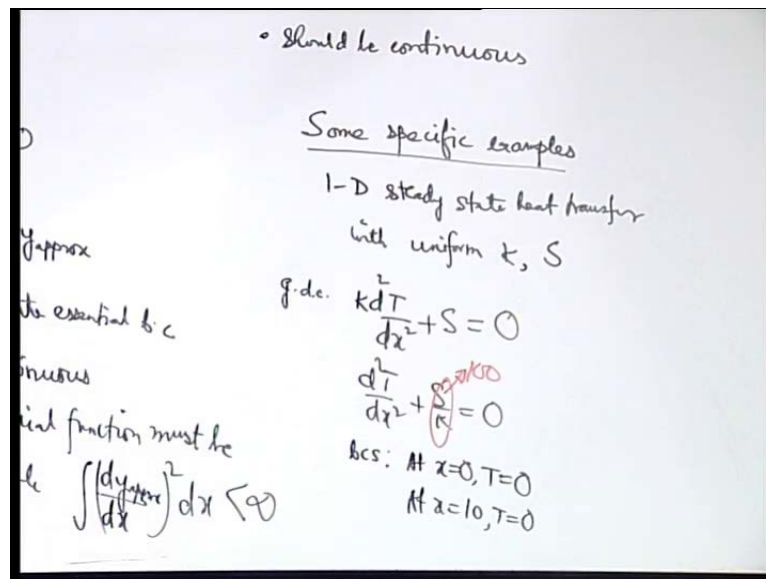 • Should be continuous
Some specific examples
1-D steady state heat transfer
with uniform k, S
g.d.e. k d²T/dx² + S = 0
d²T/dx² + S/k = 0
bcs: At x=0, T=0
At x=10, T=0
yapprox
the essential b.c
function must be
∫(dyapprox/dx)² dx < ∞